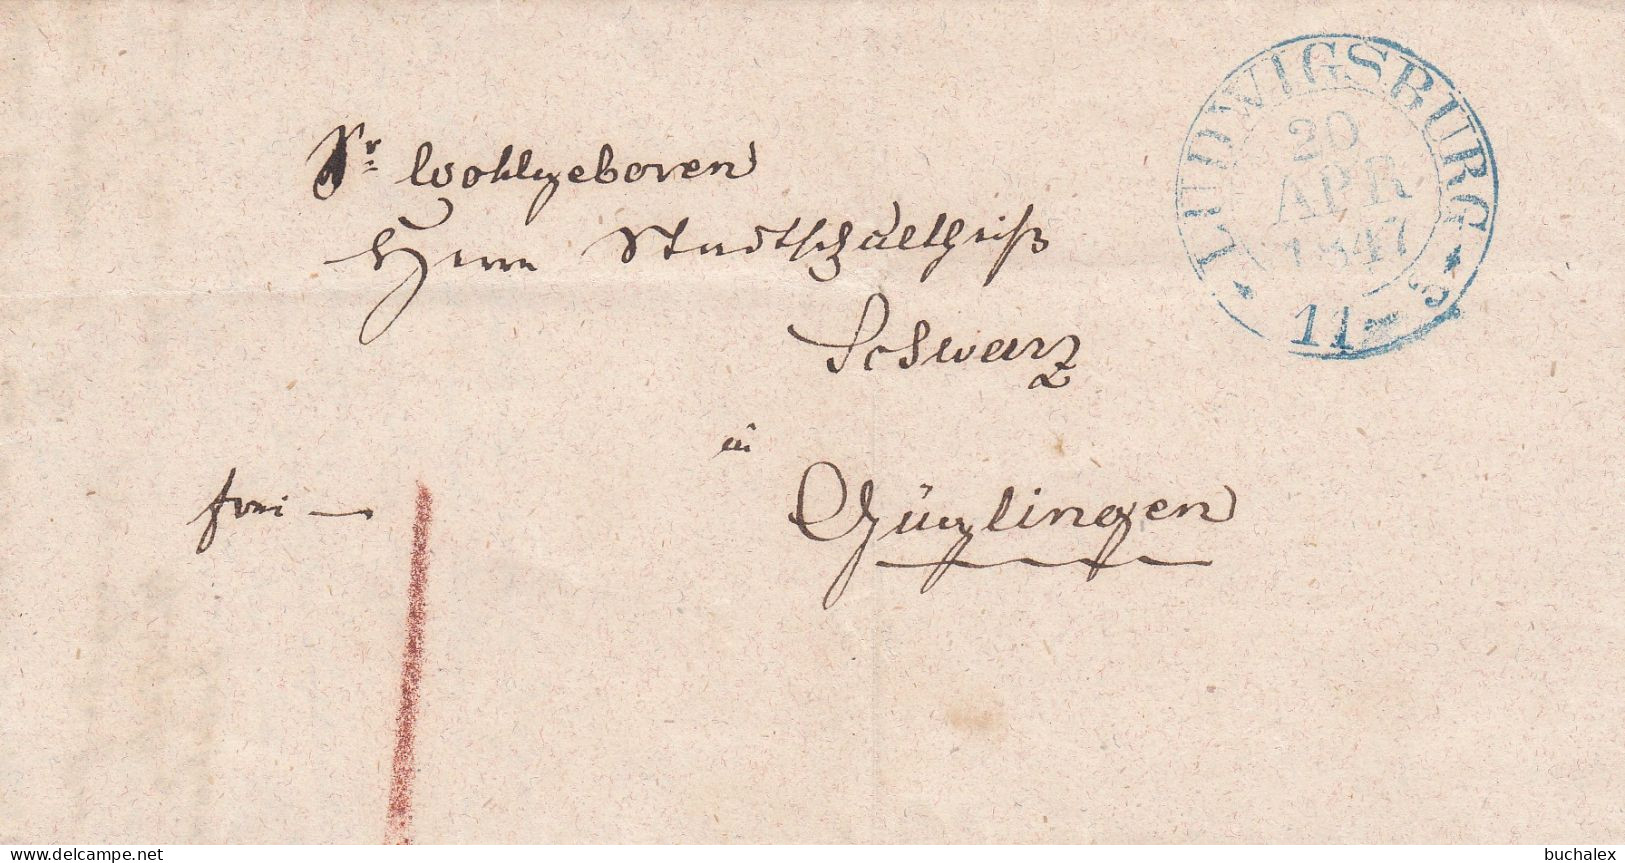 Sr. Wohlgeboren
Herrn Stadtschultheiß
Schwarz
in
Güglingen
frei —
LUDWIGSBURG
20
APR
1847
11
delcampe.net
buchalex